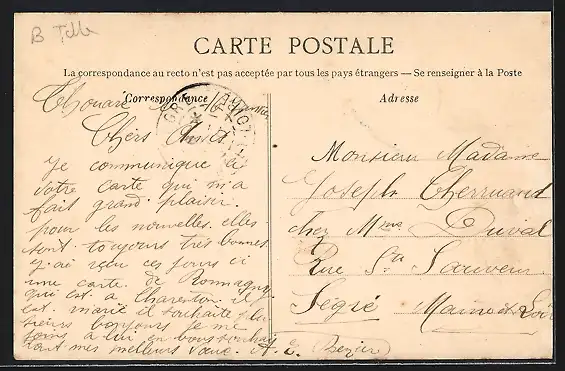 CARTE POSTALE
La correspondance au recto n'est pas acceptée par tous les pays étrangers — Se renseigner à la Poste
Correspondance
Adresse
Thouaré
Chers Amis
Je communique à
votre carte qui m'a
fait grand plaisir.
pour les nouvelles. elles
sont toujours très bonnes
J'ai reçu ces jours ci
une carte de Romagny
qui est à Charenton il
est marié il souhaite plu
sieurs bonjours je me
joins à lui en vous souhai
tant mes meilleurs vœux. A. C.
Monsieur Madame
Joseph Therruand
chez Mme Duval
Rue St Sauveur
Segré Maine et Loire